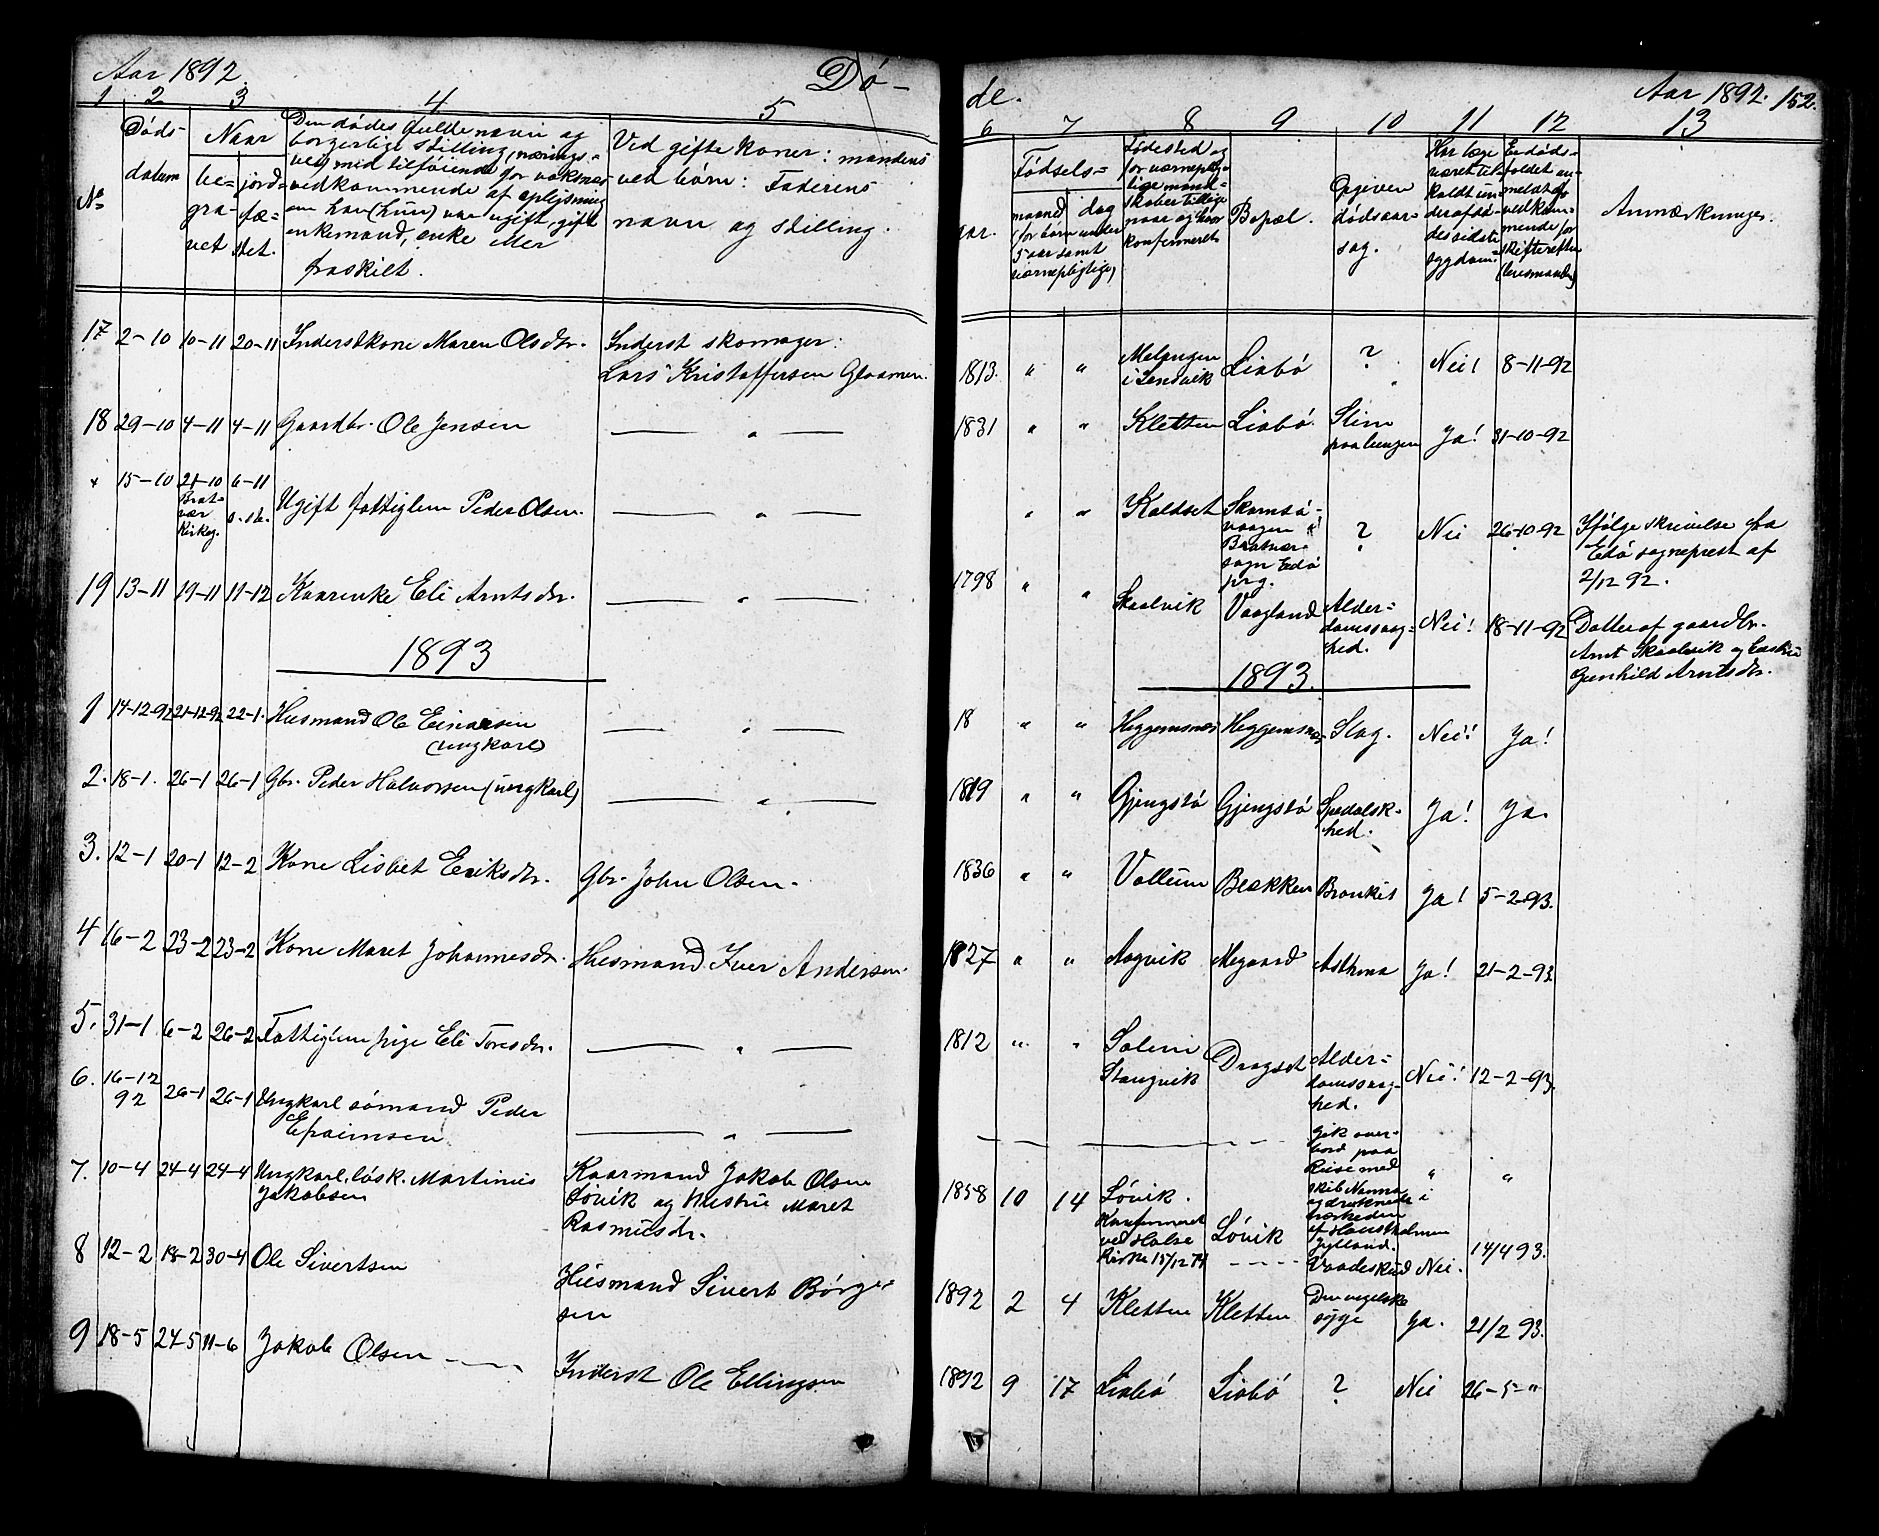 Aar 1892.
Dö-
1 2 3 4 5
No
Döds-
datum
Naar
be-
gra-
vet
jord-
fæ-
stet.
Den dödes fulde navn og
borgerlige stilling, nærings-
vei, med tilföiende for voksnes
vedkommende af oplysning
om han (hun) var ugift, gift
enkemand, enke eller
fraskilt.
Ved gifte koner: mandens
ved börn: Faderens
navn og stilling.
17 2-10 10-11 20-11 Inderstkone Maren Olsdtr. Inderst skomager:
Lars Kristoffersen Gloamen.
18 29-10 4-11 4-11 Gaardbr. Ole Jensen — " —
× 15-10 21-10 6-11 Ugift fattiglem Peder Olsen. — " —
Brat-
vær
Kirkeg.
19 13-11 19-11 11-12 Kaarenke Eli Arntsdtr. — " —
1893
1 14-12-92 21-12-92 22-1. Husmand Ole Einarsen — " —
(ungkarl)
2. 18-1. 26-1 26-1 Gbr. Peder Halvorsen (ungkarl) — " —
3. 12-1 20-1 12-2 Kone Lisbet Eriksdtr. Gbr. John Olsen.
4 16-2 23-2 23-2 Kone Maret Johannesdtr. Husmand Iver Andersen.
5. 31-1 6-2 26-2 Fattiglem pige Eli Toresdtr. — " —
6. 16-12 26-1 26-1 Ungkarl sömand Peder
92 Efraimsen — " —
7. 10-4 24-4 24-4 Ungkarl, lösk. Martinus Kaarmand Jakob Olsen
Jakobsen Lövik og hustru Maret
Rasmusdtr.
8 12-2 18-2 30-4 Ole Sivertsen Husmand Sivert Börge-
sen
9 18-5 24-5 11-6 Jakob Olsen Inderst Ole Ellingsen
de.
Aar 1892. 152.
6 7 8 9 10 11 12 13
aar.
Födsels-
maaned
dag
(for börn under
5 aar samt
værnepligtige)
Födested og
for værneplig-
tige mand-
skaber tillige
naar og hvor
konfirmeret
Bopæl.
Opgiven
dödsaar-
sag.
Har læge
været til-
kaldt un-
der afdö-
des sidste
sygdom.
Er döds-
faldet an-
meldt for
vedkom-
mende
skifteretten
(lensmand)
Anmærkninger.
1813. " " Melangen
i Sandvik Liabö ? Nei! 8-11-92
1831 " " Kletten Liabö. Slim
paa lungen Ja! 31-10-92
" " Koldset Skomsö-
vaagen i
Bratvær
sogn Edö
prg. ? Nei 26-10-92 Ifölge skrivelse fra
Edö sogneprest af
2/12 92.
1798 " " Skaalvik Vaagland Alder-
domssvag-
hed. Nei! 18-11-92 Datter af gaardbr.
Arnt Skaalvik og hustru
Gunhild Arntsdtr.
1893.
18 " " Heggemsnes Heggemsnes Slag. Nei! Ja!
1819 " " Gjengstö Gjengstö Spedalsk-
hed. Ja! Ja.
1836 " " Vollum Bækken Bronkit Ja! 5-2-93.
1827 " " Aagvik Megaard Asthma Ja! 21-2-93.
1812 " " Solem
Stangvik Dragset Alder-
domssvag-
hed. Nei! 12-2-93.
Gik over-
bord paa
Reise med
skib Nanna
og druknede i
nærheden
af Hanstholmen
Jylland. " "
1858 10 14 Lövik.
Konfirmeret
ved Halse
Kirke 15/12 74 Lövik Vaadeskud Nei. 14/4 93.
1892 2 4 Kletten Kletten Den engelske
syge Ja. 21/2 93.
1892 9 17 Liabö Liabö ? Nei 26-5-"